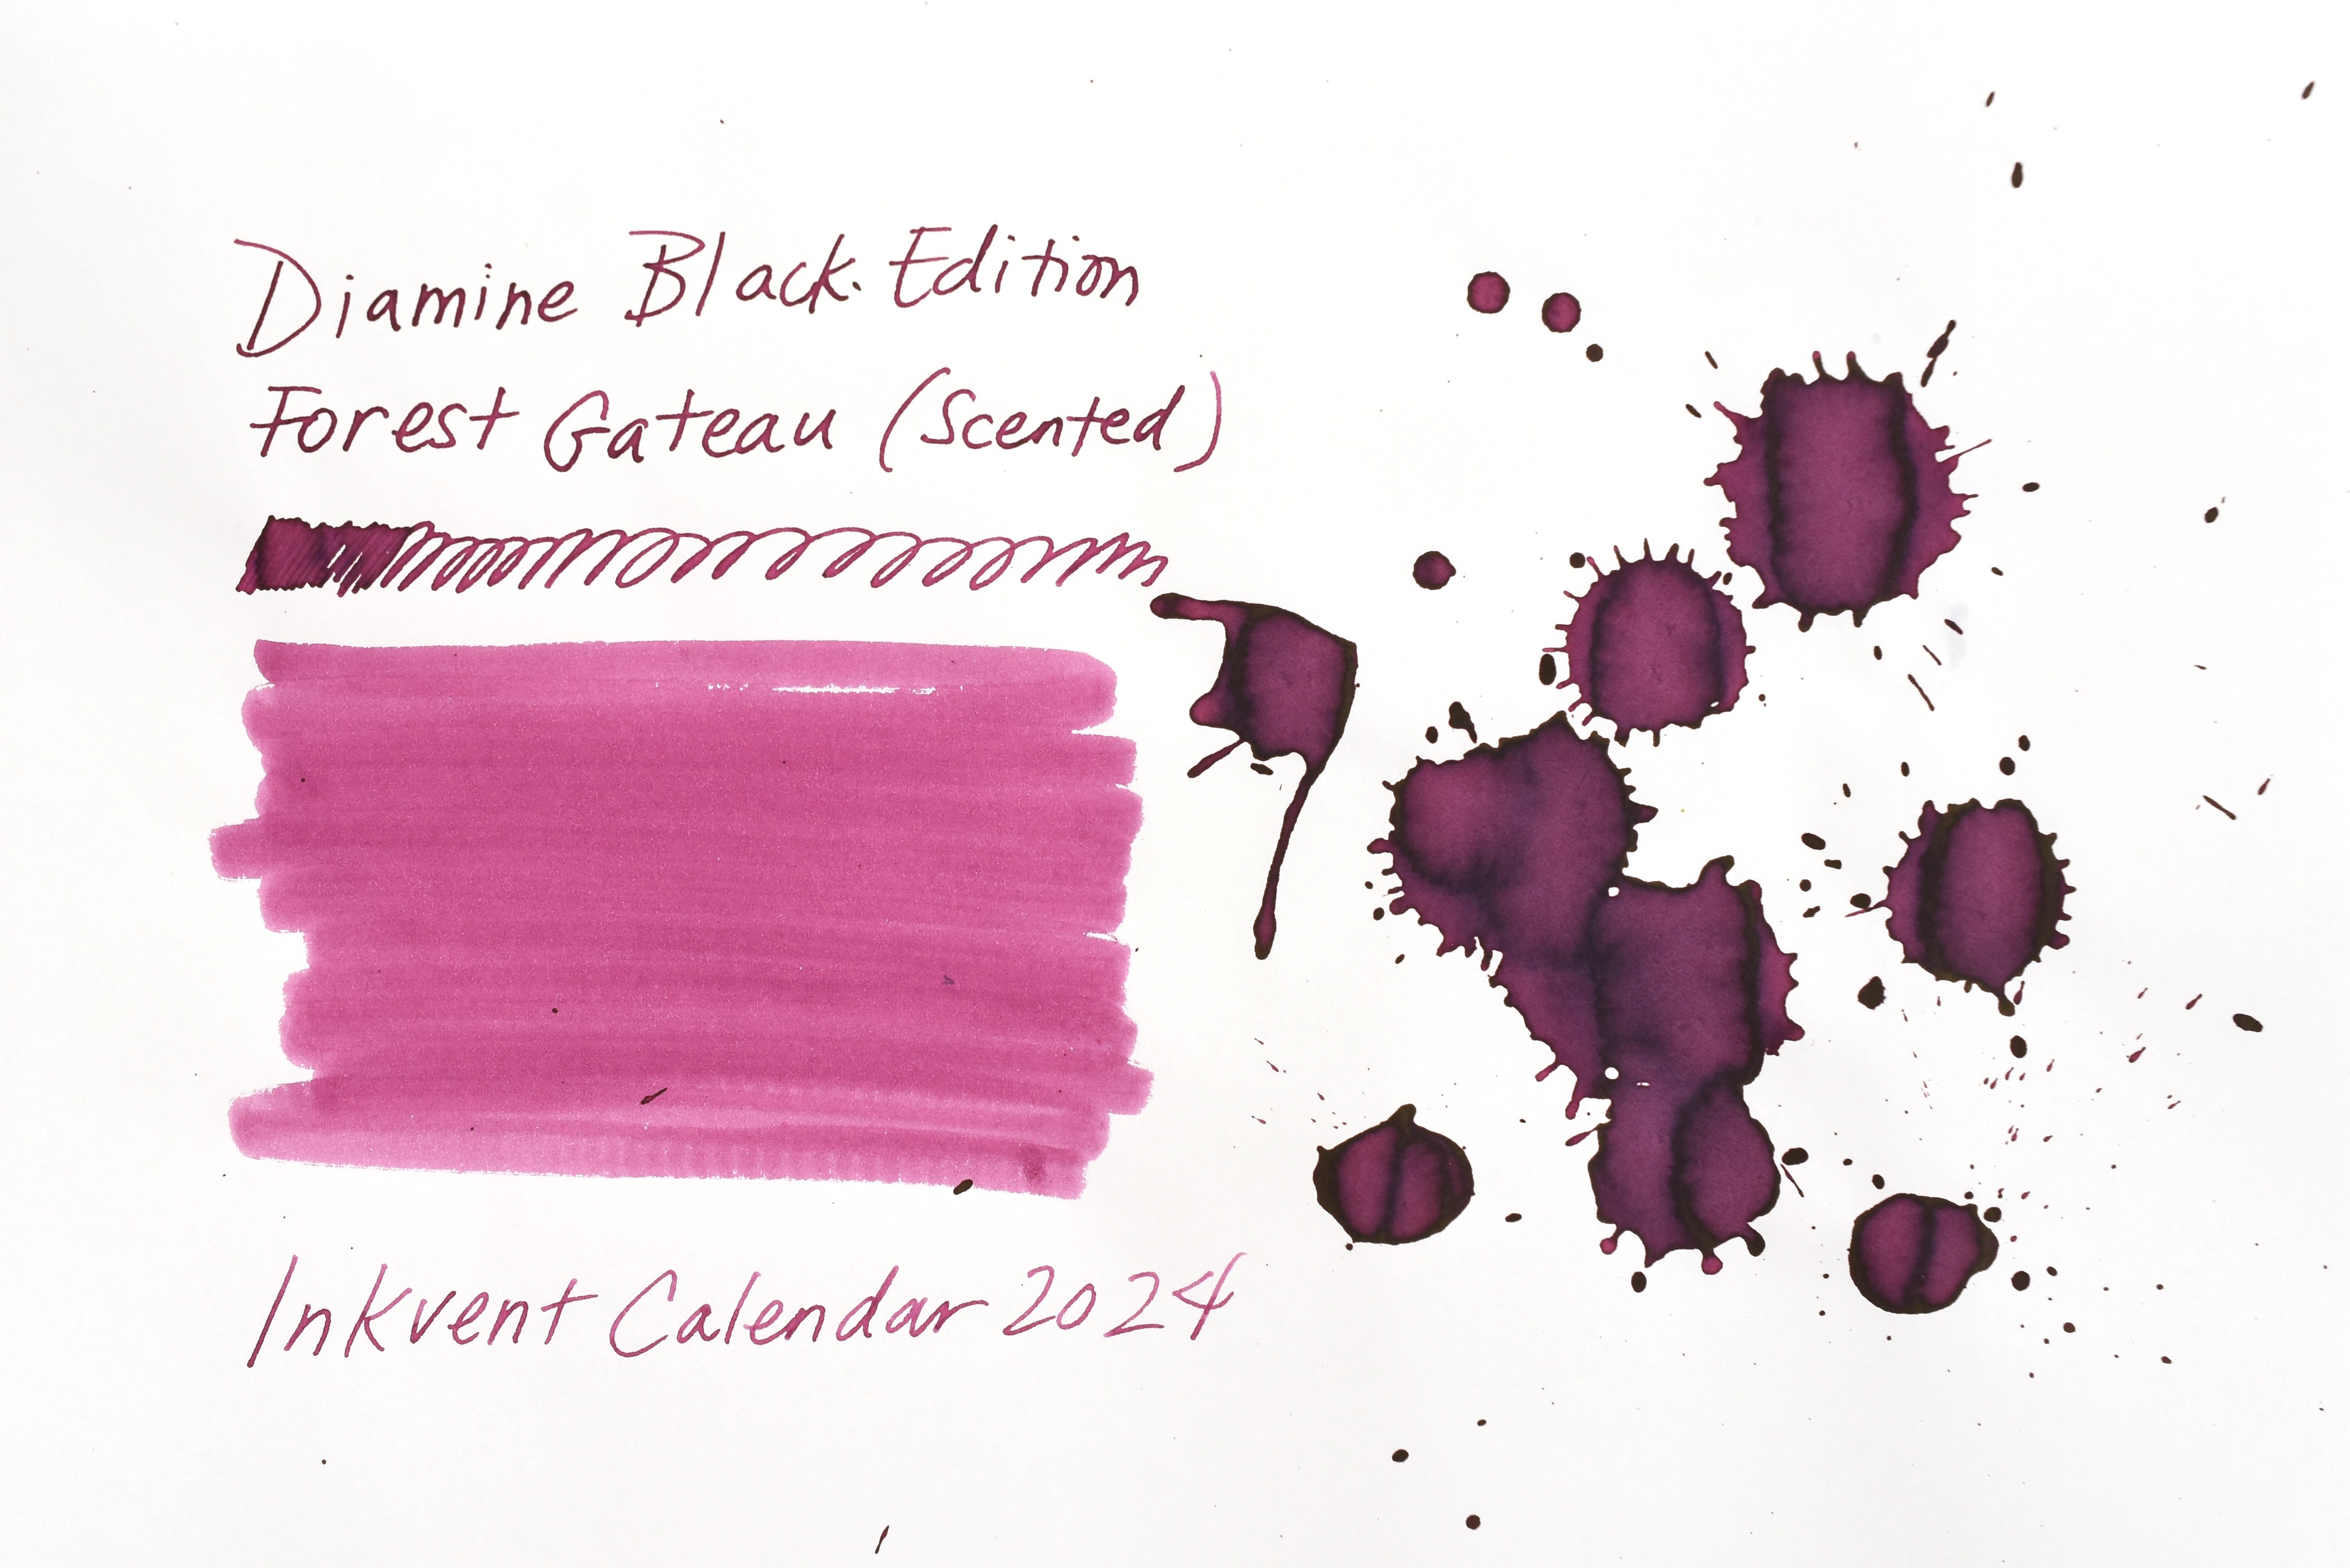 Diamine Black Edition
Forest Gateau (Scented)
Inkvent Calendar 2024